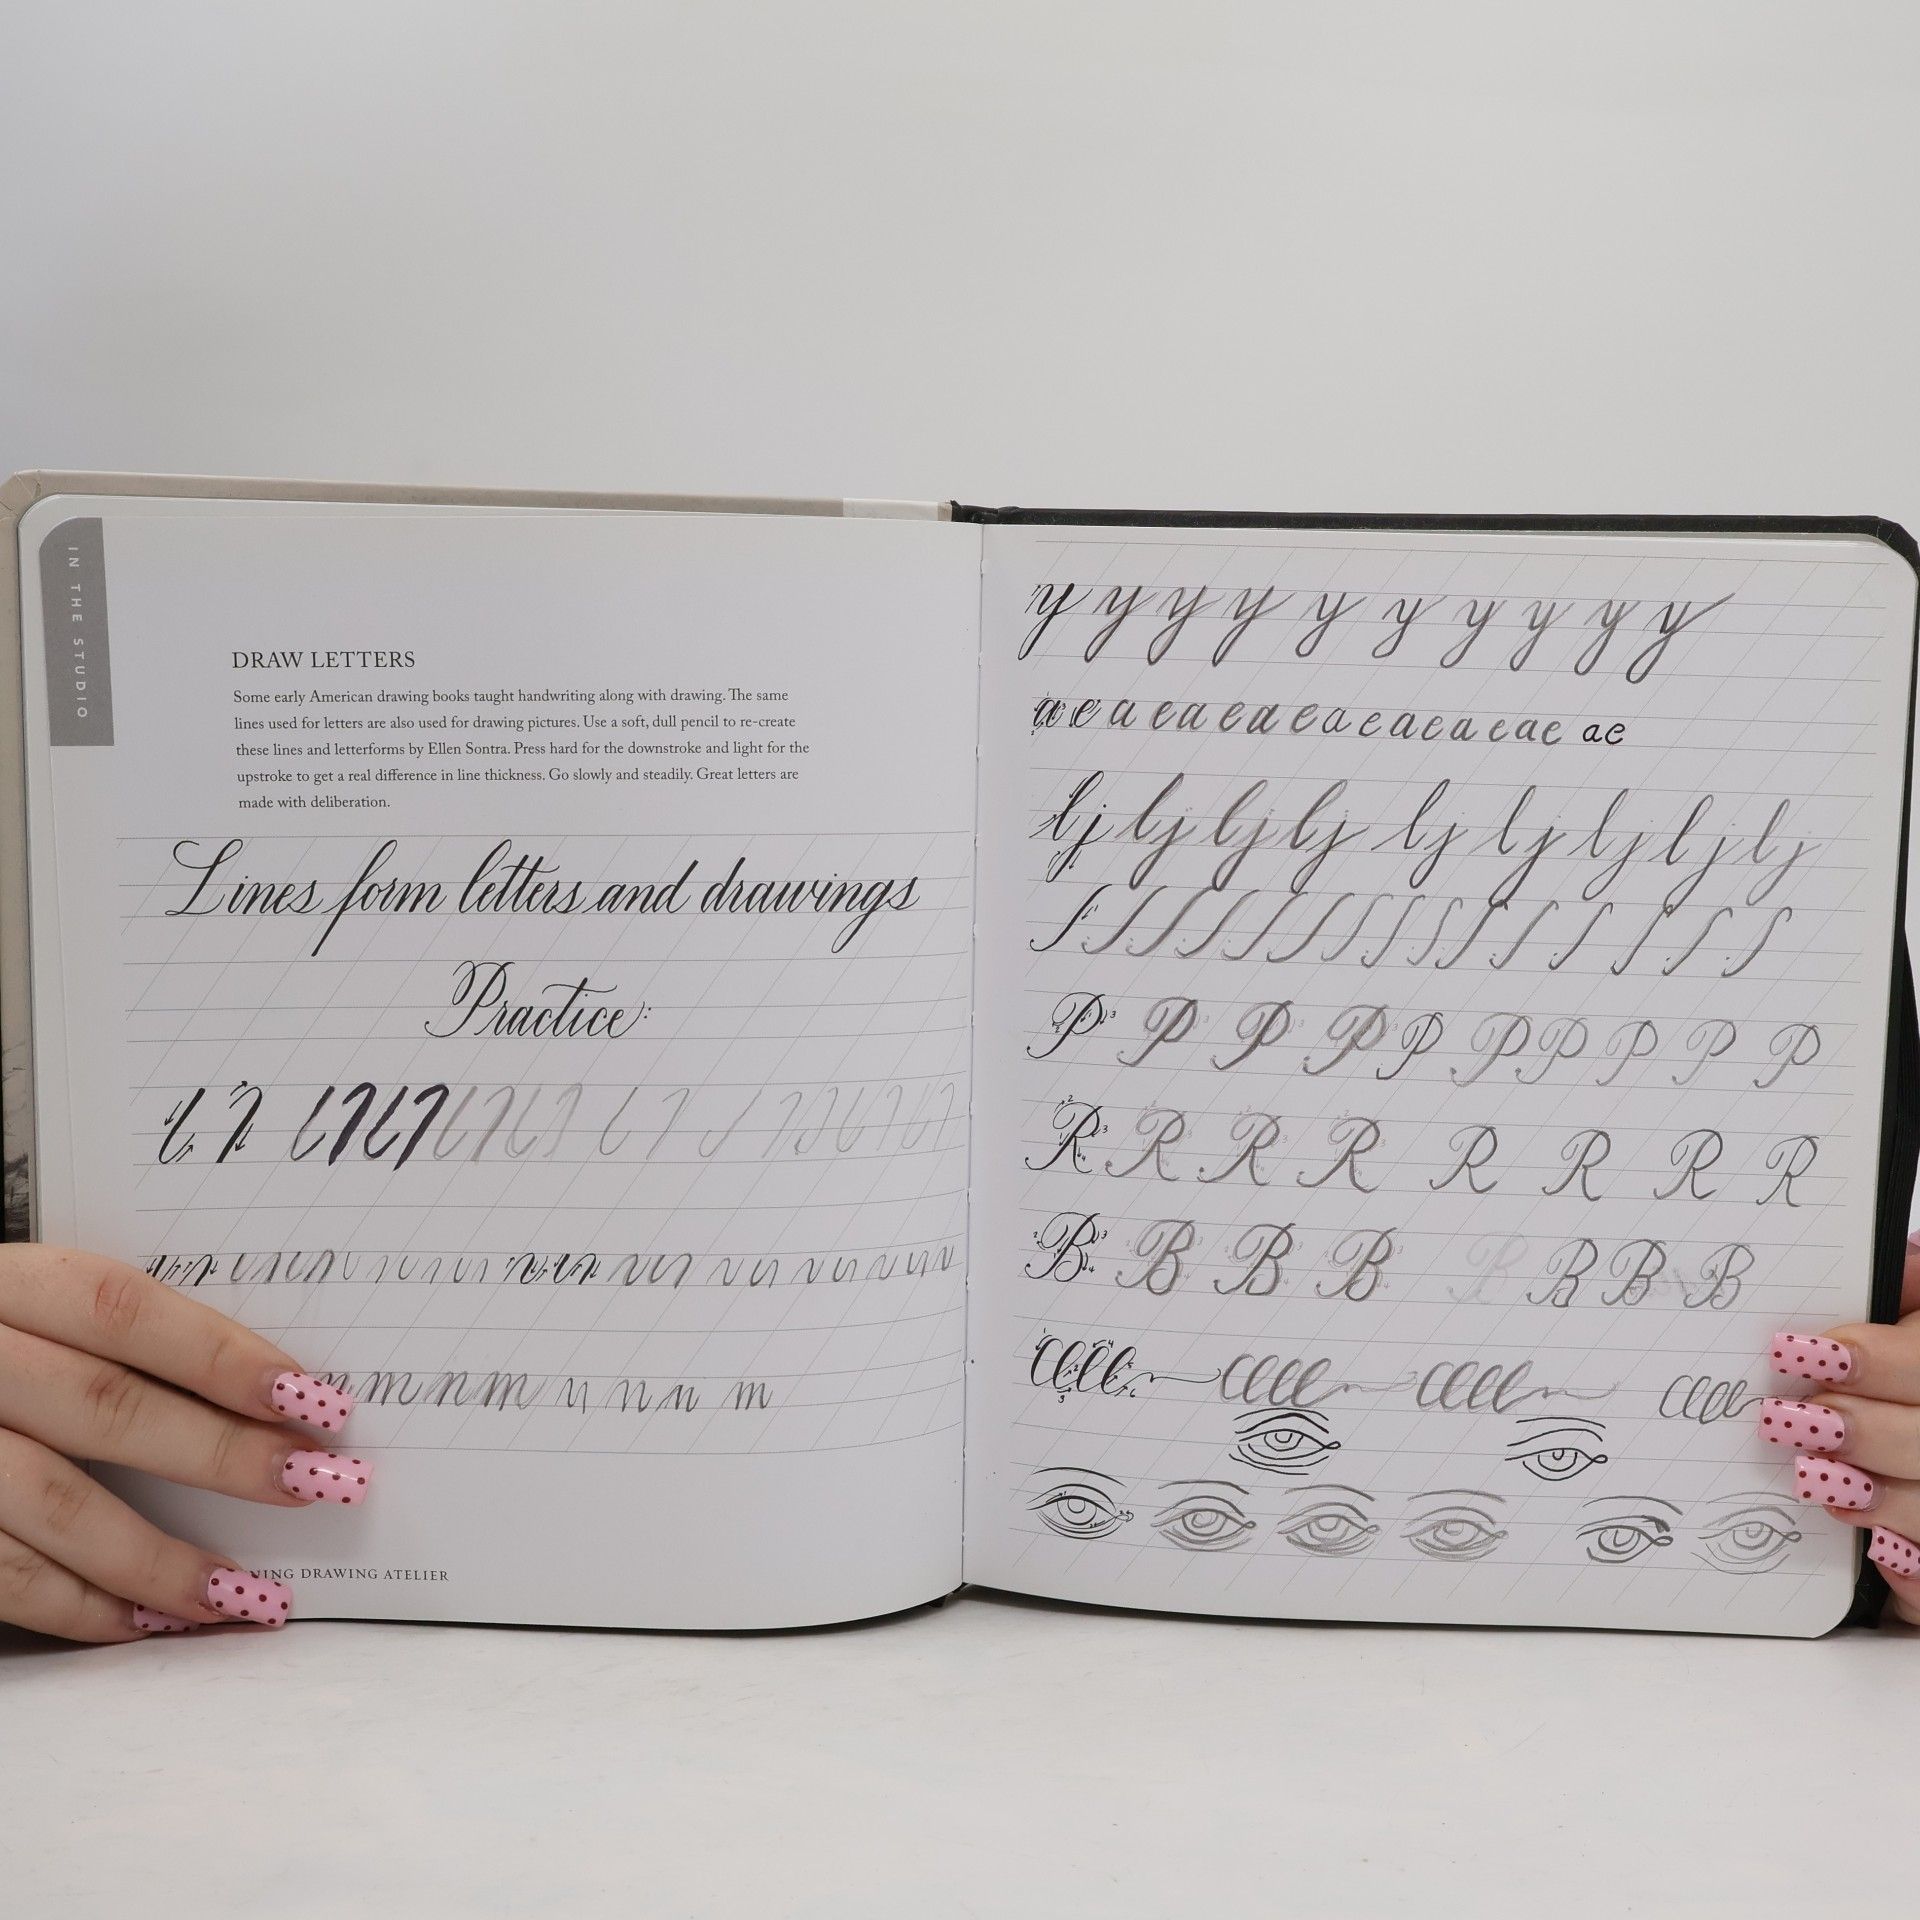 IN THE STUDIO
DRAW LETTERS
Some early American drawing books taught handwriting along with drawing. The same
lines used for letters are also used for drawing pictures. Use a soft, dull pencil to re-create
these lines and letterforms by Ellen Sontra. Press hard for the downstroke and light for the
upstroke to get a real difference in line thickness. Go slowly and steadily. Great letters are
made with deliberation.
Lines form letters and drawings
Practice:
n m n m n n n m
DRAWING ATELIER
y y y y y y y y y y
a e a e a e a e a e a e a e a e ae
l j l j l j l j l j l j l j l j l j
P P P P P P P P P P
R R R R R R R R
B B B B B B B B